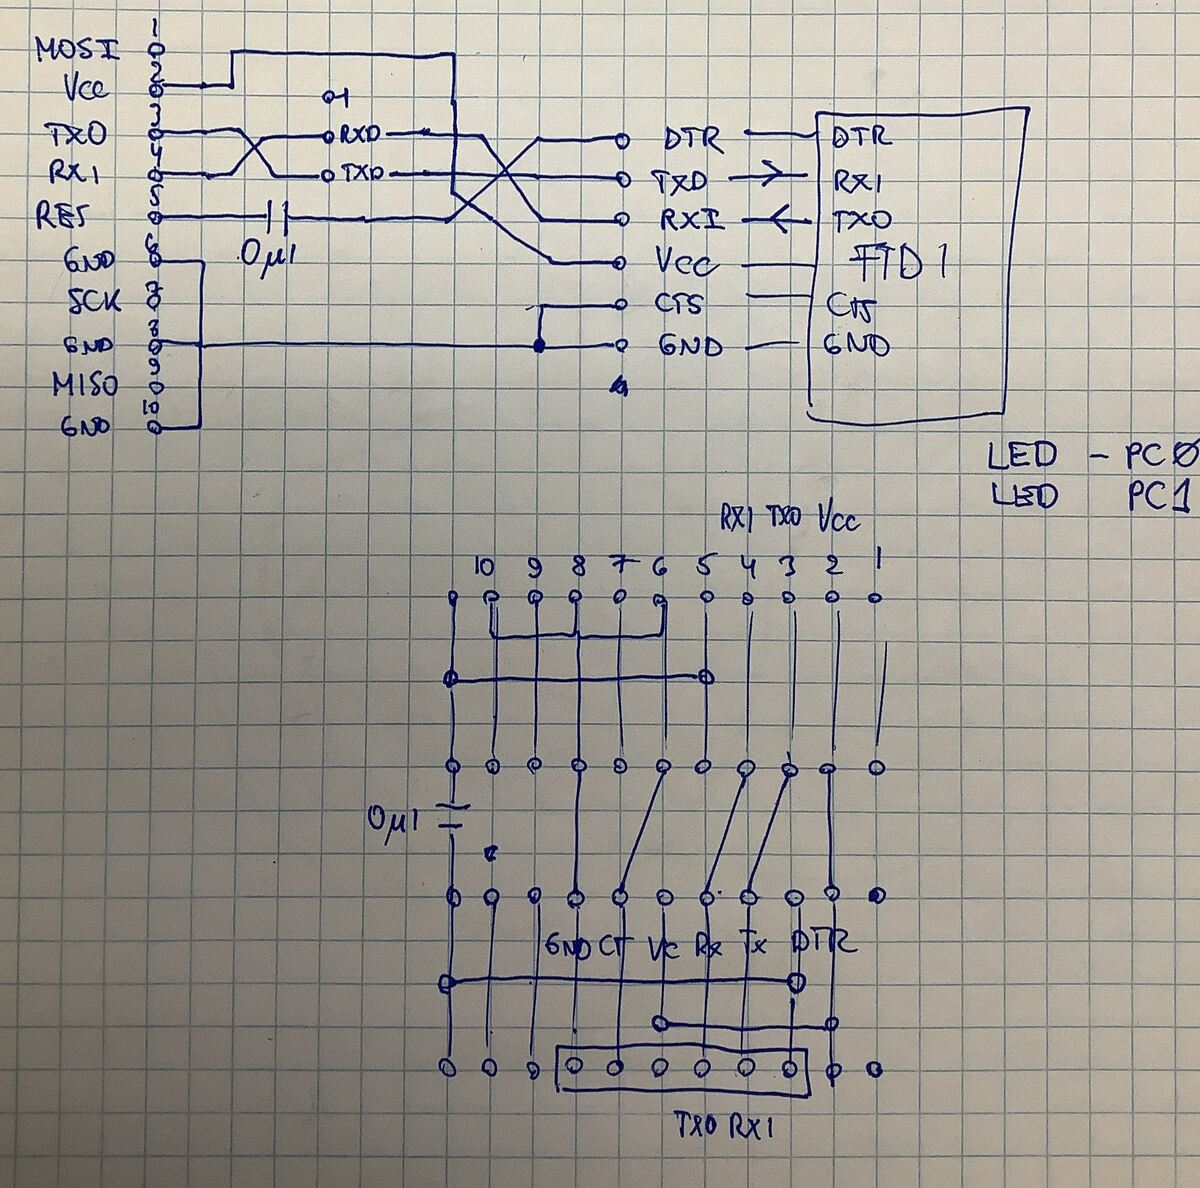 1
MOSI
2
Vcc
3
TXO
4
RX1
5
RES
6
GND
7
SCK
8
GND
9
MISO
10
GND
1
RXD
TXD
0µ1
DTR DTR
TXD RX1
RXI TXO
Vcc FTDI
CTS CTS
GND GND
LED - PC0
LED PC1
RX1 TXO Vcc
10 9 8 7 6 5 4 3 2 1
0µ1
GND CT Vc Rx Tx DTR
TXO RX1